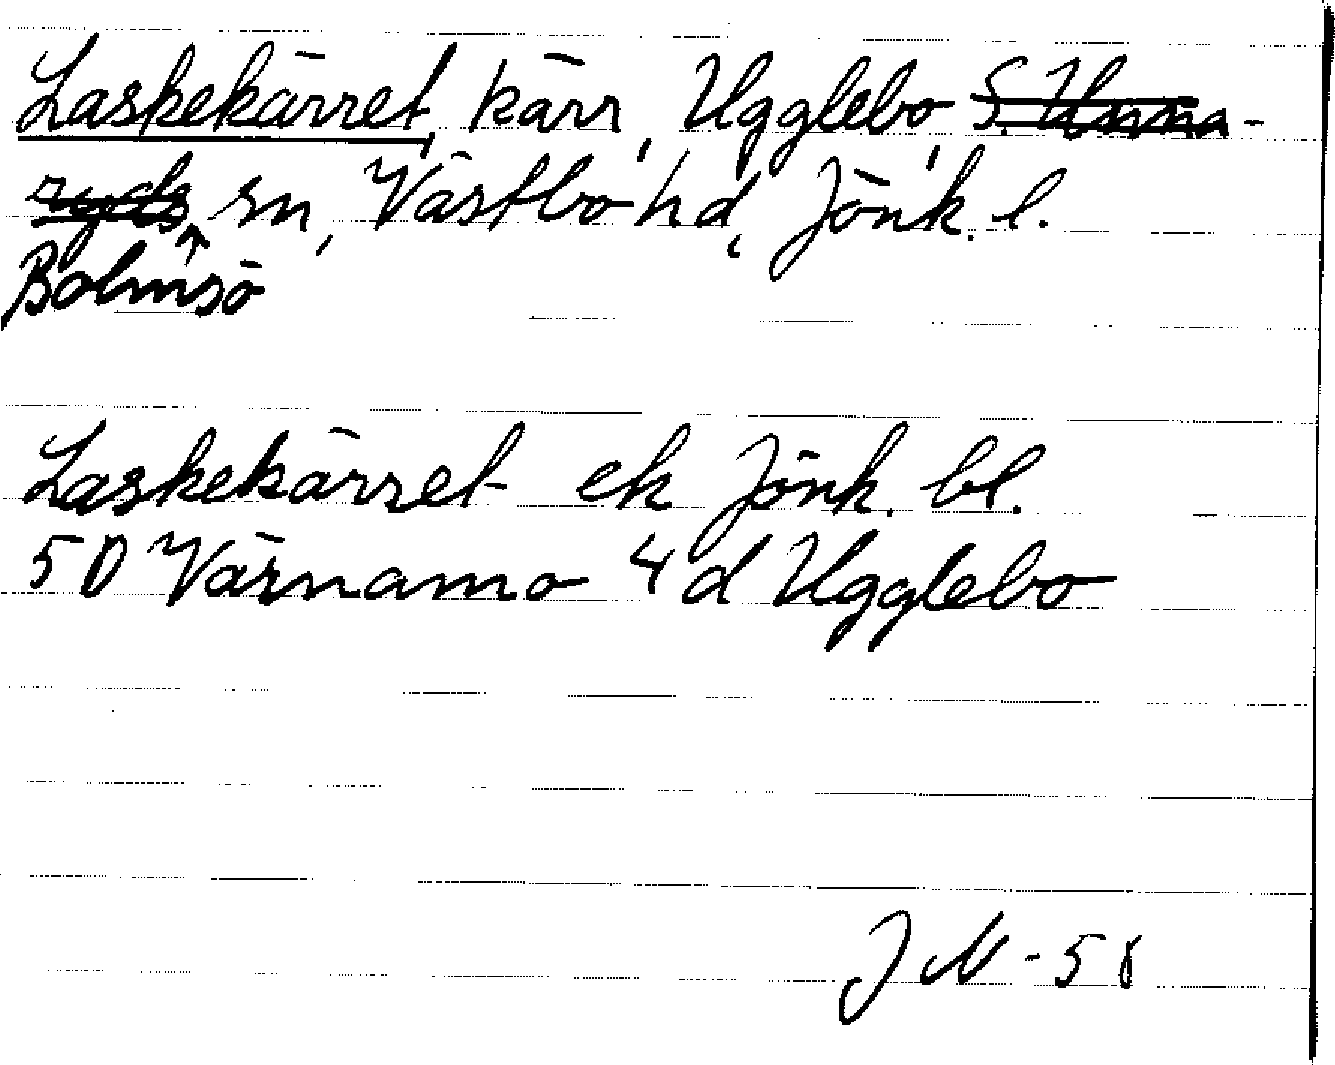 Laskekärret, kärr, Ugglebo, S. Unna-
ryds sn, Västbo hd, Jönk. l.
Bolmsö
Laskekärret ek Jönk. bl.
5D Värnamo 4d Ugglebo
JN-58